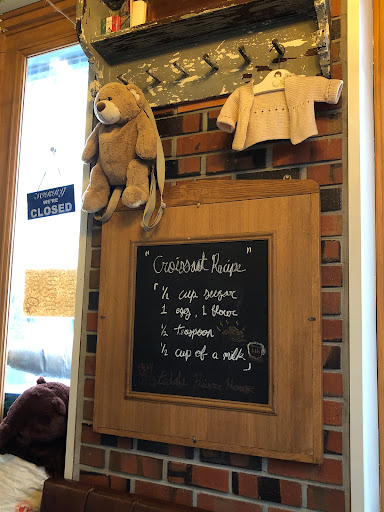 SORRY
WE'RE
CLOSED
" Croissant Recipe "
「 ½ cup sugar
1 egg, 1 flour
½ teaspoon
½ cup of a milk 」
House